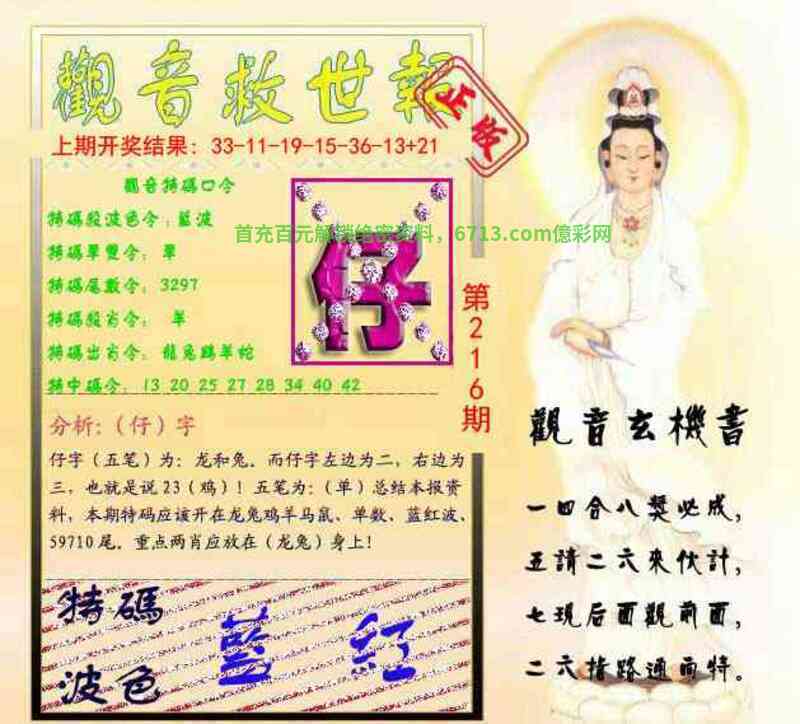 觀音救世報
正版
上期开奖结果：33-11-19-15-36-13+21
觀音特碼口令
特碼殺波色令：藍波
特碼單雙令：單
特碼尾數令：3297
特碼殺肖令：羊
特碼出肖令：龍兔鷄羊蛇
特中碼令：13 20 25 27 28 34 40 42
仔
首充百元解锁绝密资料，6713.com億彩网
第216期
分析：（仔）字
仔字（五笔）为：龙和兔。而仔字左边为二，右边为
三，也就是说23（鸡）！五笔为：（单）总结本报资
料，本期特码应该开在龙兔鸡羊马鼠、单数、蓝红波、
59710尾。重点两肖应放在（龙兔）身上！
特碼
波色
藍 紅
觀音玄機書
一四合八獎必成，
五請二六來伙計，
七現后面觀前面，
二六指路通向特。